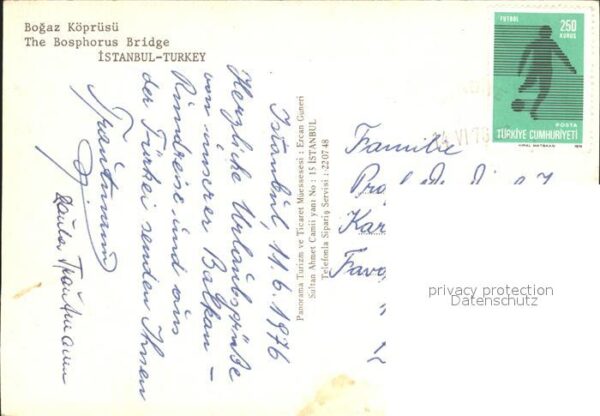 Boğaz Köprüsü
The Bosphorus Bridge
İSTANBUL-TURKEY
Istanbul, 11.6.1976
Herzliche Urlaubsgrüße
von unserer Balkan-
Rundreise und aus
der Türkei senden Ihnen
Trautmann
Paula Trautmann
Panorama Turizm ve Ticaret Müessesesi : Ercan Güneri
Sultan Ahmet Camii yanı No : 15 İSTANBUL
Telefonla Sipariş Servisi : 220748
FUTBOL
250
KURUŞ
POSTA
TÜRKİYE CUMHURİYETİ
Familie
privacy protection
Datenschutz